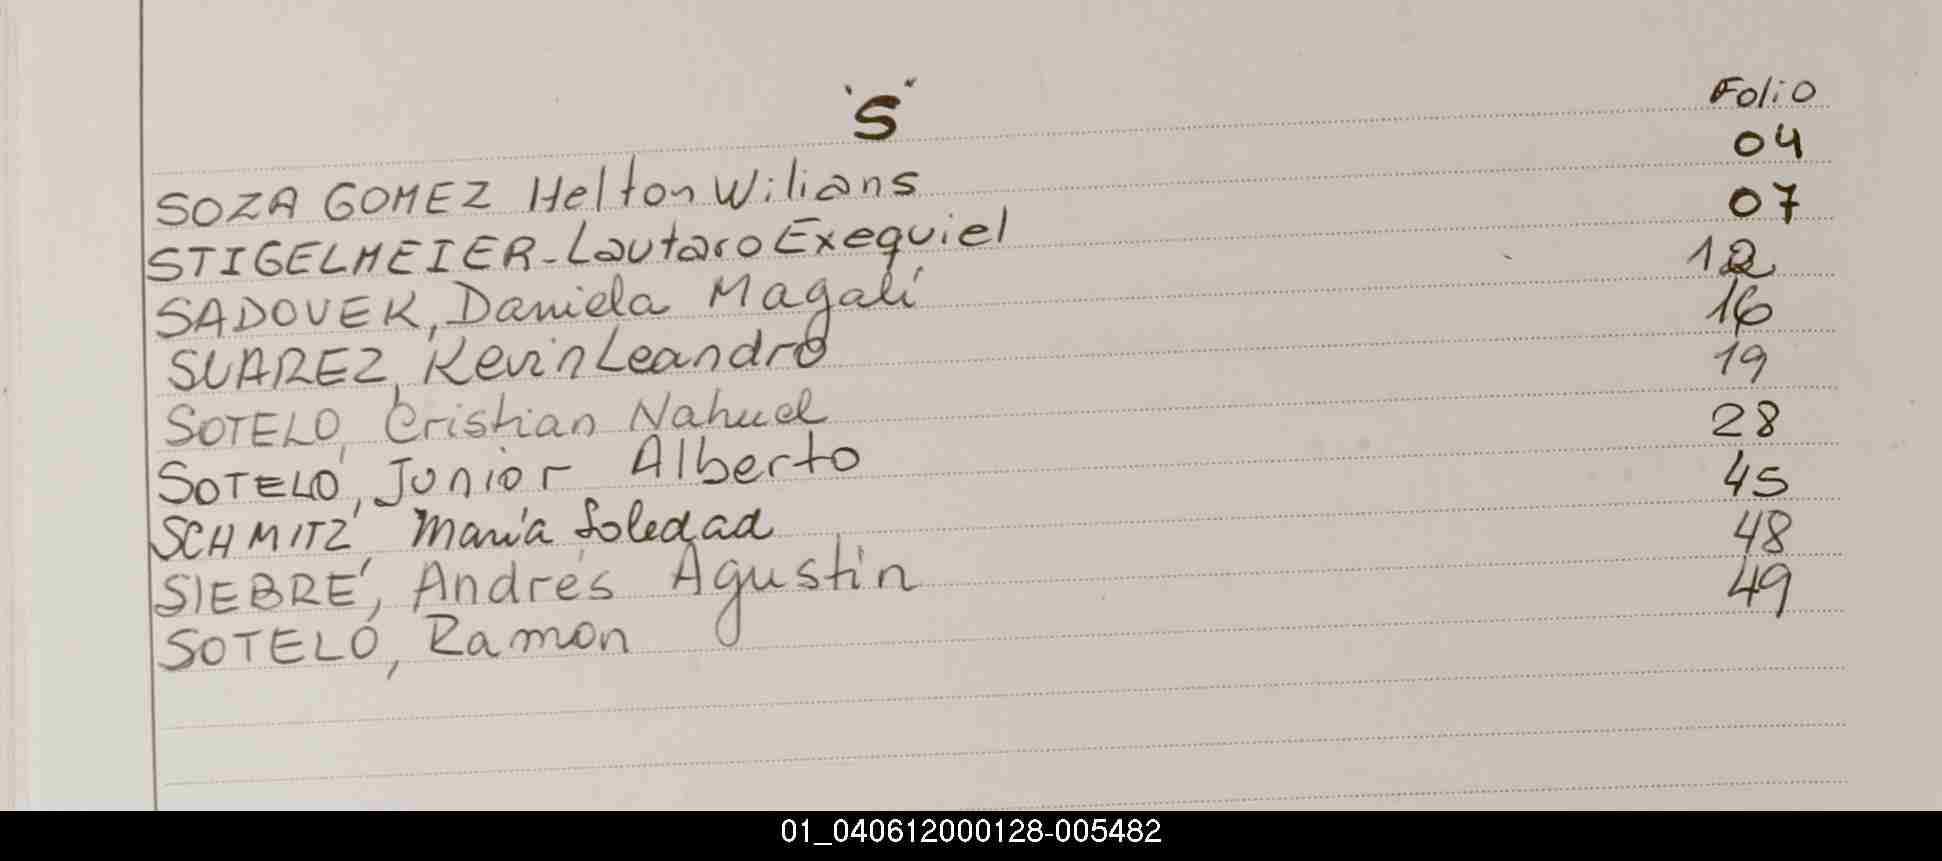 "S" Folio
SOZA GOMEZ Helton Wilians 04
STIGELMEIER-Lautaro Exequiel 07
SADOVEK, Daniela Magalí 12
SUAREZ, Kevin Leandro 16
SOTELO, Cristian Nahuel 19
SOTELO, Junior Alberto 28
SCHMITZ María Soledad 45
SIEBRE, Andrés Agustín 48
SOTELO, Ramon 49
01_040612000128-005482